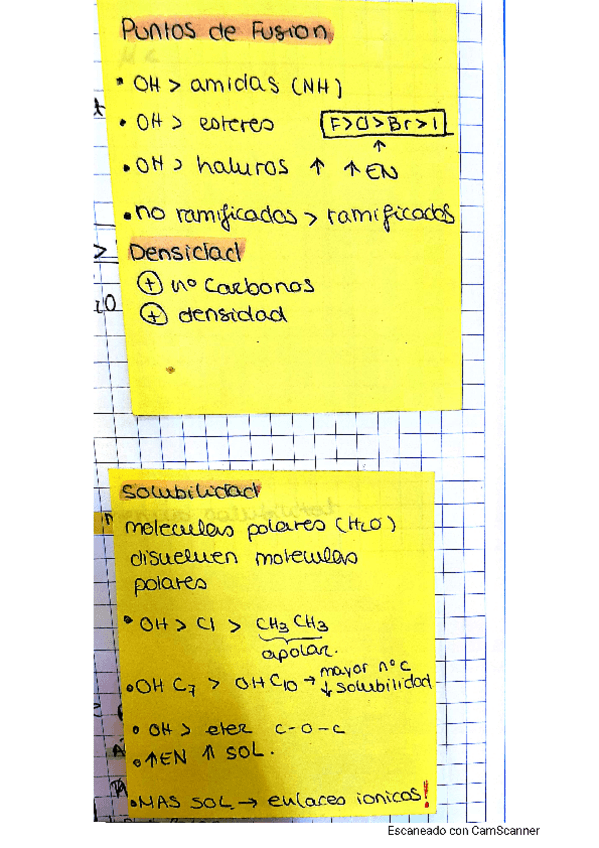 Puntos de Fusion
• OH > amidas (NH)
• OH > esteres F>Cl>Br>I
• OH > haluros ↑ ↑ EN
• no ramificados > ramificados
Densidad
⊕ nº Carbonos
⊕ densidad
Solubilidad
moleculas polares (H2O)
disuelven moleculas
polares
• OH > Cl > CH3 CH3
apolar.
• OH C7 > OH C10 → mayor nº C
↓ solubilidad
• OH > eter C-O-C
• ↑EN ⇑ SOL.
• MAS SOL → enlaces ionicos!
Escaneado con CamScanner